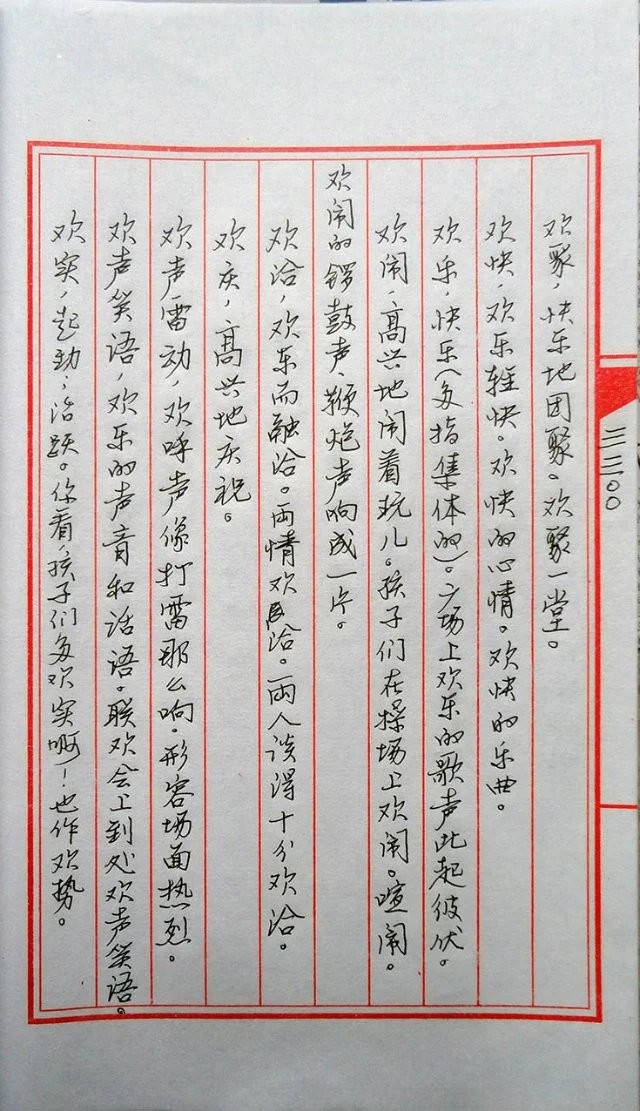 欢聚，快乐地团聚。欢聚一堂。
欢快，欢乐轻快。欢快的心情。欢快的乐曲。
欢乐，快乐（多指集体的）。广场上欢乐的歌声此起彼伏。
欢闹，高兴地闹着玩儿。孩子们在操场上欢闹。喧闹。
欢闹的锣鼓声、鞭炮声响成一片。
欢洽，欢乐而融洽。两情欢洽。两人谈得十分欢洽。
欢庆，高兴地庆祝。
欢声雷动，欢呼声像打雷那么响。形容场面热烈。
欢声笑语，欢乐的声音和话语。联欢会上到处欢声笑语。
欢实，起劲；活跃。你看，孩子们多欢实啊！也作欢势。
三三〇〇